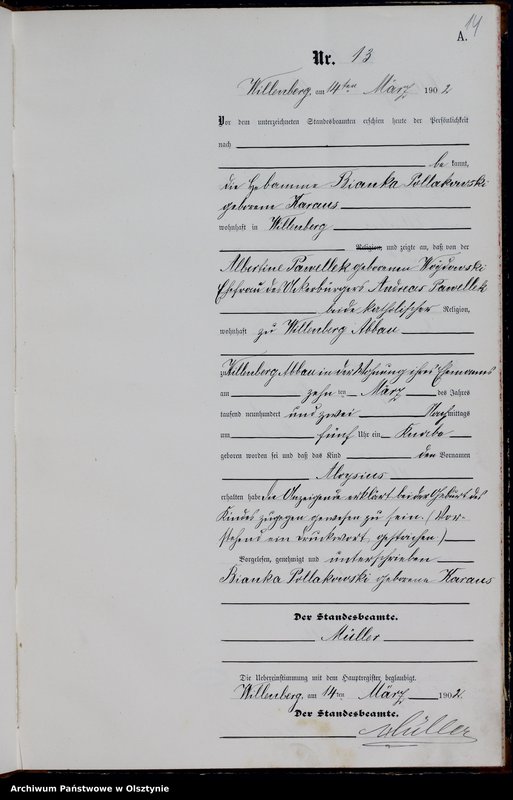 14
A.
Nr. 13
Willenberg, am 14ten März 1902
Vor dem unterzeichneten Standesbeamten erschien heute der Persönlichkeit
nach
be kannt,
die Hebamme Bianka Pollakowski
geborene Karaus
wohnhaft in Willenberg
Religion, und zeigte an, daß von der
Albertine Pawellek geborenen Wojdowski
Ehefrau des Ackerbürgers Andreas Pawellek
beide katholischer Religion,
wohnhaft zu Willenberg Abbau
zu Willenberg Abbau in der Wohnung ihres Ehemanns
am zehn ten März des Jahres
tausend neunhundert und zwei Nachmittags
um fünf Uhr ein Knabe
geboren worden sei und daß das Kind den Vornamen
Aloysius
erhalten habe. Die Anzeigende erklärt bei der Geburt des
Kindes zugegen gewesen zu sein. (Vor-
stehend ein Druckwort gestrichen.)
Vorgelesen, genehmigt und unterschrieben
Bianka Pollakowski geborene Karaus
Der Standesbeamte.
Müller
Die Uebereinstimmung mit dem Hauptregister beglaubigt.
Willenberg, am 14ten März 1902
Der Standesbeamte.
Müller
Archiwum Państwowe w Olsztynie